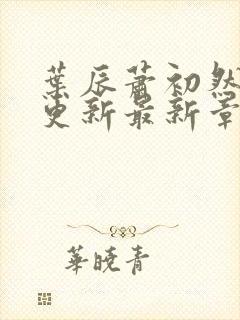 葉辰蕭初然
更新最新章
華曉青